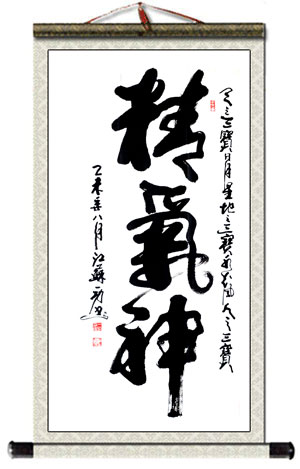 天之三寶日月星地之三寶水火風人之三寶
精氣神
乙未年八月江蘇